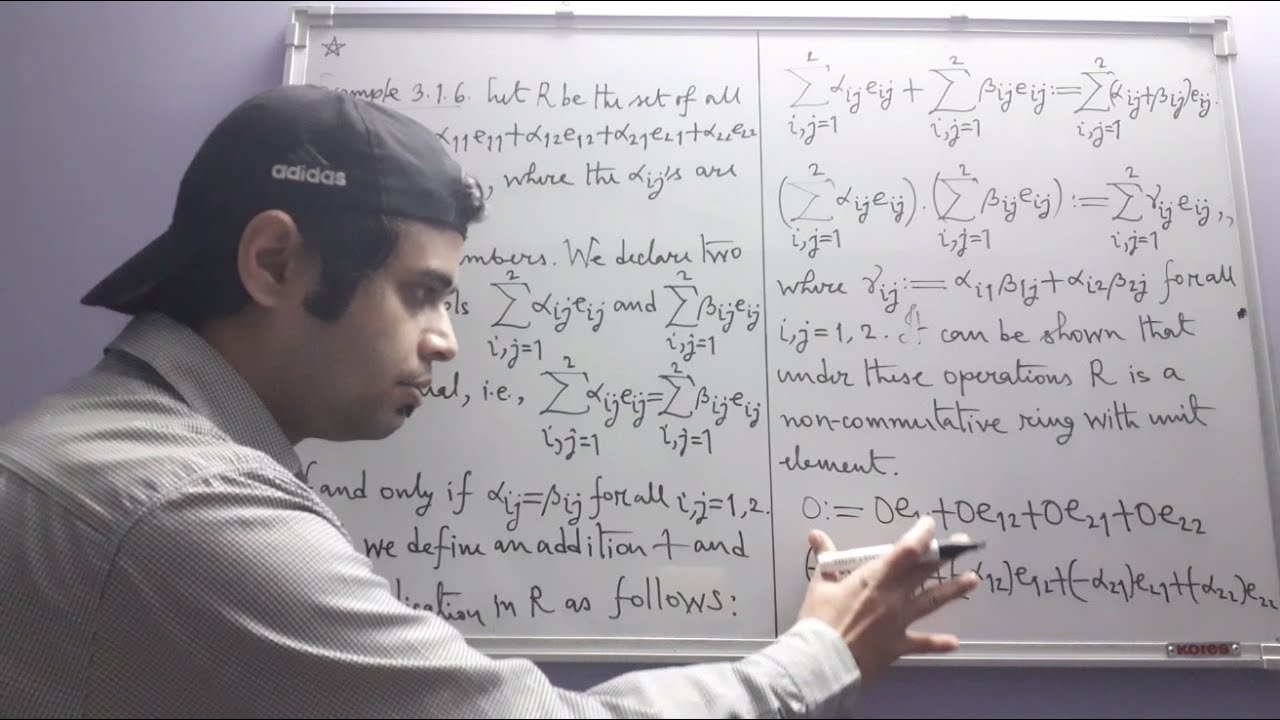 ☆
Example 3.1.6. Let R be the set of all
α₁₁e₁₁+α₁₂e₁₂+α₂₁e₂₁+α₂₂e₂₂
, where the αᵢⱼ's are
We declare two
∑²ᵢ,ⱼ₌₁ αᵢⱼeᵢⱼ and ∑²ᵢ,ⱼ₌₁ βᵢⱼeᵢⱼ
, i.e., ∑²ᵢ,ⱼ₌₁ αᵢⱼeᵢⱼ=∑²ᵢ,ⱼ₌₁ βᵢⱼeᵢⱼ
and only if αᵢⱼ=βᵢⱼ for all i,j=1,2.
we define an addition + and
in R as follows:
∑²ᵢ,ⱼ₌₁ αᵢⱼeᵢⱼ + ∑²ᵢ,ⱼ₌₁ βᵢⱼeᵢⱼ:=∑²ᵢ,ⱼ₌₁(αᵢⱼ+βᵢⱼ)eᵢⱼ.
(∑²ᵢ,ⱼ₌₁ αᵢⱼeᵢⱼ).(∑²ᵢ,ⱼ₌₁ βᵢⱼeᵢⱼ):=∑²ᵢ,ⱼ₌₁ γᵢⱼeᵢⱼ,,
where γᵢⱼ:=αᵢ₁β₁ⱼ+αᵢ₂β₂ⱼ for all
i,j=1,2. It can be shown that
under these operations R is a
non-commutative ring with unit
element.
0:=0e₁+0e₁₂+0e₂₁+0e₂₂
+(-α₁₂)e₁₂+(-α₂₁)e₂₁+(-α₂₂)e₂₂
adidas
KORES